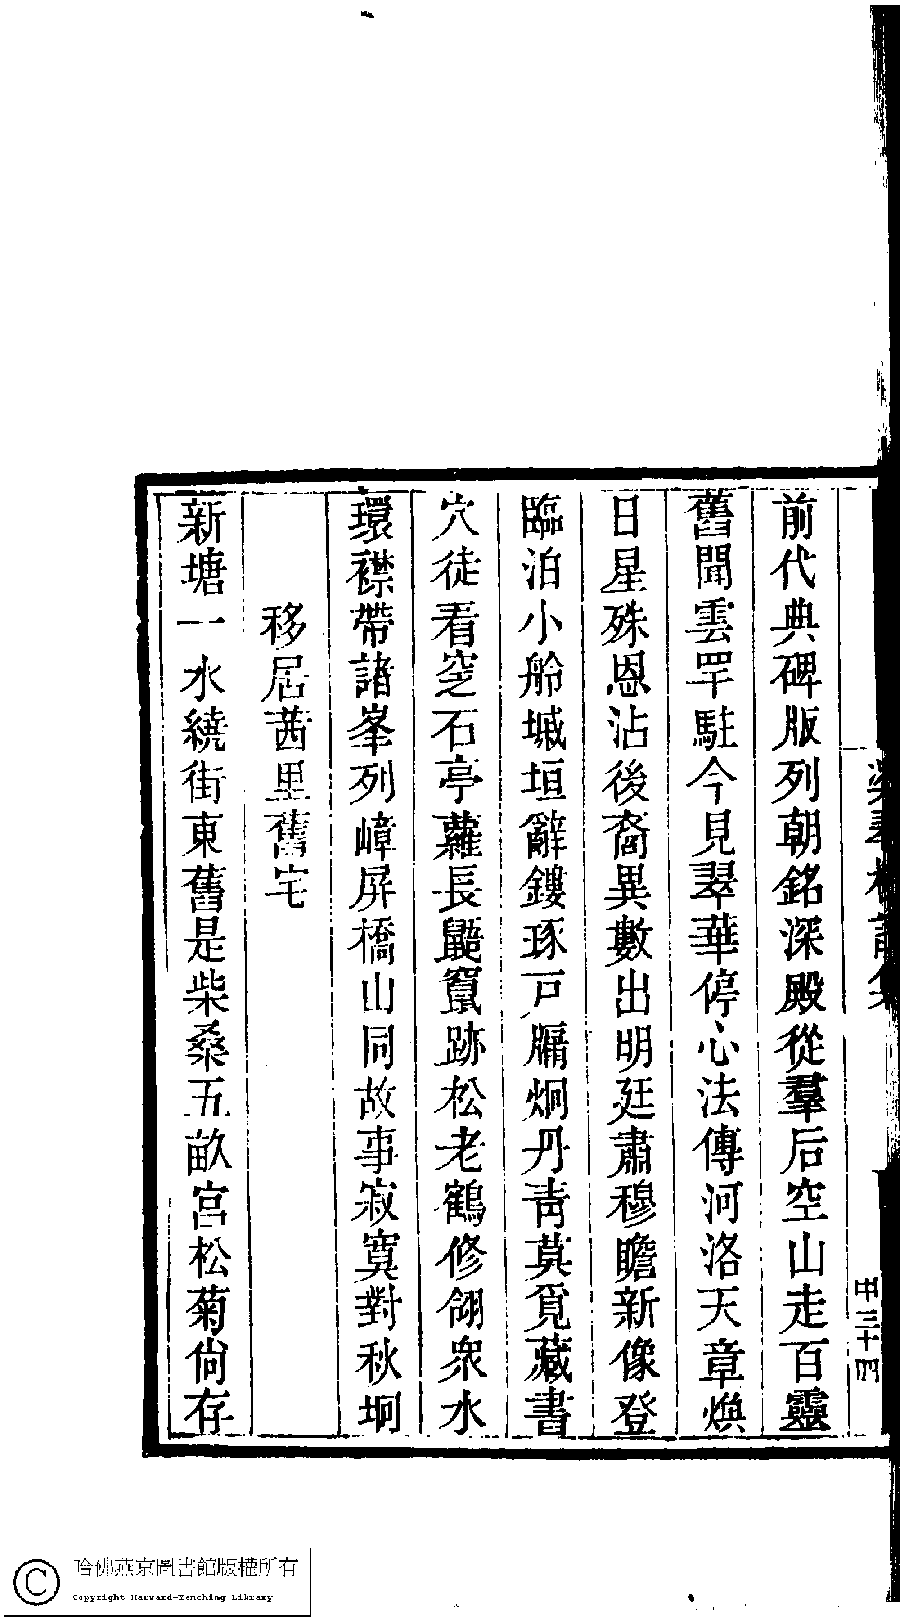 前代典碑版列朝銘深殿從羣后空山走百靈
舊聞雲罕駐今見翠華停心法傳河洛天章煥
日星殊恩沾後裔異數出明廷肅穆瞻新像登
臨泊小舲堿垣辭鏤琢戸牖炯丹靑莫覓藏書
穴徒看窆石亭蘿長鼯竄跡松老鶴修翎衆水
環襟帶諸峯列嶂屏橋山同故事寂寞對秋坰
移居茜里舊宅
新塘一水繞街東舊是柴桑五畝宮松菊尙存
甲三十四
哈佛燕京圖書館版權所有
Copyright Harvard-Yenching Library